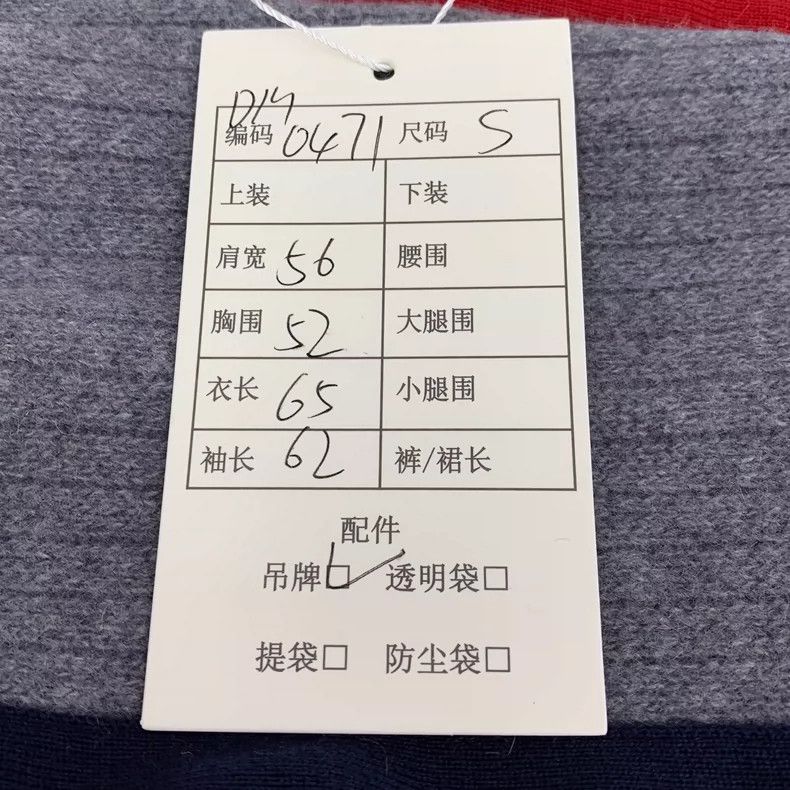 D14
编码 0471 尺码 S
上装 下装
肩宽 56 腰围
胸围 52 大腿围
衣长 65 小腿围
袖长 62 裤/裙长
配件
吊牌☑ 透明袋□
提袋□ 防尘袋□